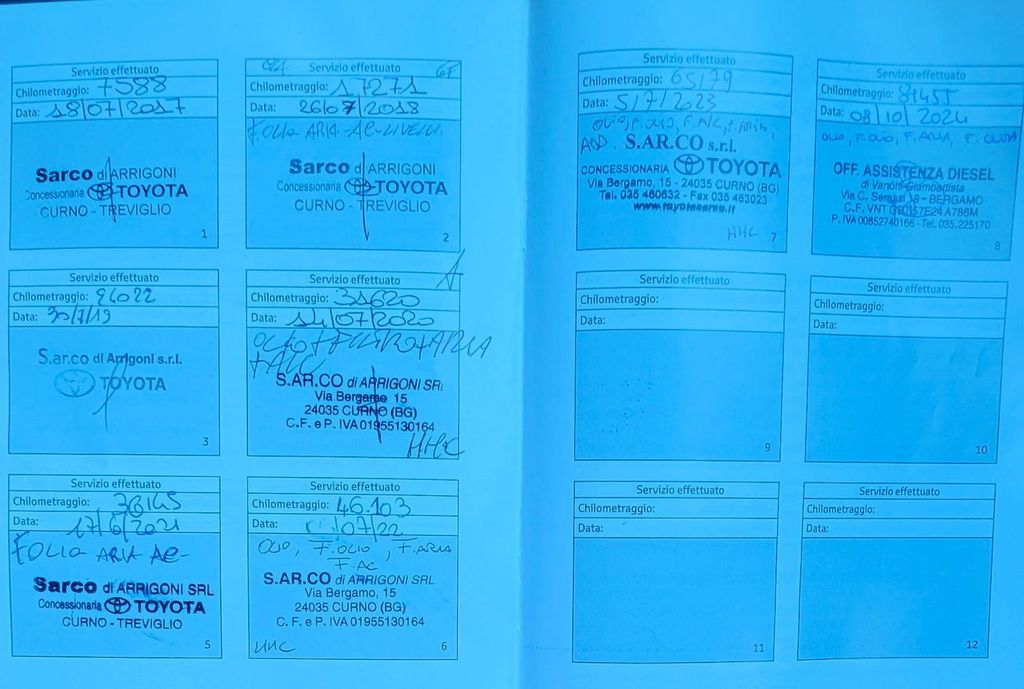 Servizio effettuato
Chilometraggio: 7588
Data: 18/07/2017
Sarco di ARRIGONI
Concessionaria TOYOTA
CURNO - TREVIGLIO
1
Servizio effettuato
Chilometraggio: 17271
Data: 26/07/2018
FOLIO ARIA - AC - LIVELLI.
Sarco di ARRIGONI
Concessionaria TOYOTA
CURNO - TREVIGLIO
2
Servizio effettuato
Chilometraggio: 24022
Data: 30/7/19
S.ar.co di Arrigoni s.r.l.
TOYOTA
3
Servizio effettuato
Chilometraggio: 31620
Data: 14/07/2020
OLIO + FILTRO + ARIA
+ A/C
S.AR.CO di ARRIGONI SRL
Via Bergamo 15
24035 CURNO (BG)
C.F. e P. IVA 01955130164
HHC
Servizio effettuato
Chilometraggio: 38145
Data: 17/6/2021
FOLIO ARIA AC -
Sarco di ARRIGONI SRL
Concessionaria TOYOTA
CURNO - TREVIGLIO
5
Servizio effettuato
Chilometraggio: 46.103
Data: 07/22
OLIO, F. OLIO, F. ARIA
F. AC
S.AR.CO di ARRIGONI SRL
Via Bergamo, 15
24035 CURNO (BG)
C. F. e P. IVA 01955130164
HHC
6
Servizio effettuato
Chilometraggio: 65179
Data: 5/7/2023
OLIO, F. OLIO, F. A/C, F. ARIA,
ADD. S.AR.CO s.r.l.
CONCESSIONARIA TOYOTA
Via Bergamo, 15 - 24035 CURNO (BG)
Tel. 035 460632 - Fax 035 463023
www.toyotasarco.it
HHC
7
Servizio effettuato
Chilometraggio: 81455
Data: 08/10/2024
OLIO, F. OLIO, F. ARIA, F. CLIMA
OFF. ASSISTENZA DIESEL
di Vanotti Giambattista
Via C. Serassi 18 - BERGAMO
C.F. VNT 57E24 A786M
P. IVA 00852740166 - Tel. 035.225170
8
Servizio effettuato
Chilometraggio:
Data:
9
Servizio effettuato
Chilometraggio:
Data:
10
Servizio effettuato
Chilometraggio:
Data:
11
Servizio effettuato
Chilometraggio:
Data:
12